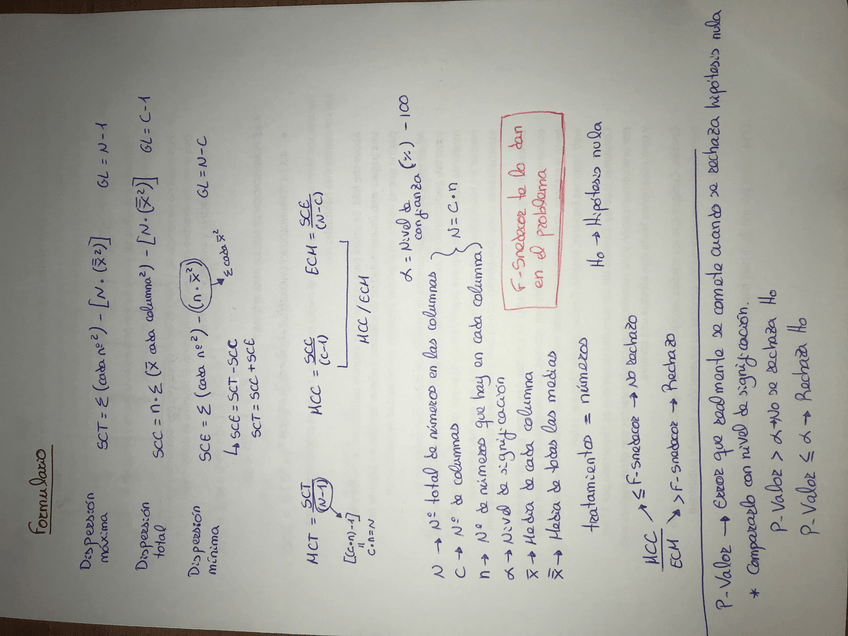 Formulario
Dispersión máxima SCT = Σ (cada nº²) - [N · (x̿²)] GL = N-1
Dispersión total SCC = n · Σ (x̄ cada columna²) - [N · (x̿²)] GL = C-1
Dispersión mínima SCE = Σ (cada nº²) - (n · x̄²) GL = N-C
Σ cada x̄²
↳ SCE = SCT - SCC
SCT = SCC + SCE
MCT = SCT/(N-1) MCC = SCC/(C-1) ECM = SCE/(N-C)
[(C·n)-1]
C·n=N
MCC / ECM
α = Nivel de confianza (%) - 100
N → Nº total de números en las columnas
C → Nº de columnas } N = C · n
n → Nº de números que hay en cada columna
α → Nivel de significación
x̄ → Media de cada columna
x̿ → Media de todas las medias
F-Snedecor te lo dan
en el problema
tratamientos = números
Ho → Hipótesis nula
MCC/ECM ↗ ≤ F-Snedecor → No rechazo
↘ > F-Snedecor → Rechazo
P-Valor → Error que realmente se comete cuando se rechaza hipótesis nula
* Compararlo con nivel de significación.
P-Valor > α → No se rechaza Ho
P-Valor ≤ α → Rechaza Ho